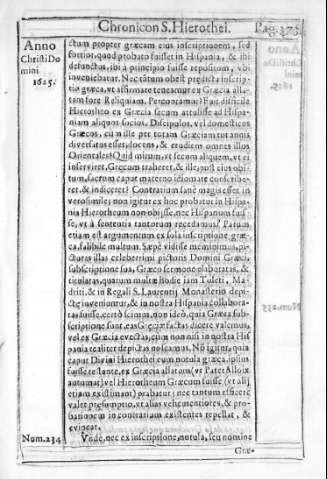 Chronicon S. Hierothei.
Pag. 373.
Anno
Christi Do
mini
1625.
ctum propter græcam eius inscriptionem, sed
fortior, quod probato fuisset in Hispania, & ibi
defunctus, ibi à principio fuisse repositum, vbi
inveniebatur. Nec tātum obest prædicta inscrip-
tio græca, vt affirmate teneamur ex Græcia alla-
tam fore Reliquiam. Percontamur? Fuit difficile
Hierotheo ex Græcia secum attulisse ad Hispa-
niam aliquot socios, Discipulos, vel domesticos
Græcos, cū mille per totam Græciam tot annis
diversatus esset, docens, & erudiens omnes illos
Orientales? Quid mirum, vt secum aliquem, vt ei
inserviret, Græcum traheret, & ille post eius obi-
tum, sacrum caput materno idiomate conscribe-
ret, & indiceret? Contratium sanè magis esset in
verosimile; non igitur ex hoc probatur in Hispa-
nia Hierotheum non obijsse, nec Hispanum fuis-
se, vt à sententia tantorum recedamus? Patum
etiam est argumentum ex sola inscriptione græ-
ca, falibile multum. Sæpè vidisse meminimus, pi-
cturas illas celeberrimi pictoris Domini Græci,
subscriptione sua, Græco sermone elaboratas, &
titulatas, quatum multæ hodie iam Toleti, Ma-
driti, & in Regali S. Laurentij Monasterio depi-
ctę inveniuntur, & in nostra Hispania collabora-
tas fuisse, certò scimus, non ideò, quia Græca sub-
scriptione sunt, eas Gręcię factas dicere valemus,
vel ex Græcia evectas, cùm non nisi in nostra His
pania realiter depictas noscamus. Nō igitur, quia
caput Divini Hierothei cum notula græca, ipsius
fuisse restante, ex Græcia allatum (vt Pater Alloix
autumat) vel Hierotheum Græcum fuisse (vt alij
etiam existimant) probatur; nec tantum efficere
valet præsumptio, vt alias vehementiores, & pro-
bationem in contratium existentes repellat, &
evincat.
Num. 234
Vnde, nec ex inscriptione, notula, seu nomine
Græ-
Num. 235